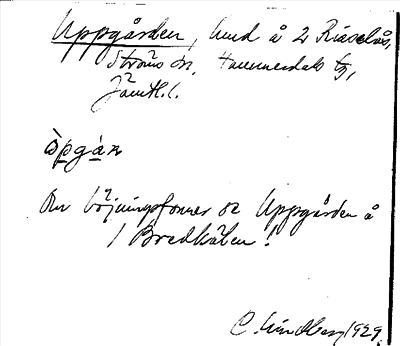 Uppgården, hmd å 2 Risselås,
Ströms sn, Hammerdals tg,
Jämtl. l.
òpgán
Om böjningsformer se Uppgården å
1 Bredkälen!
C. Lindberg 1929.